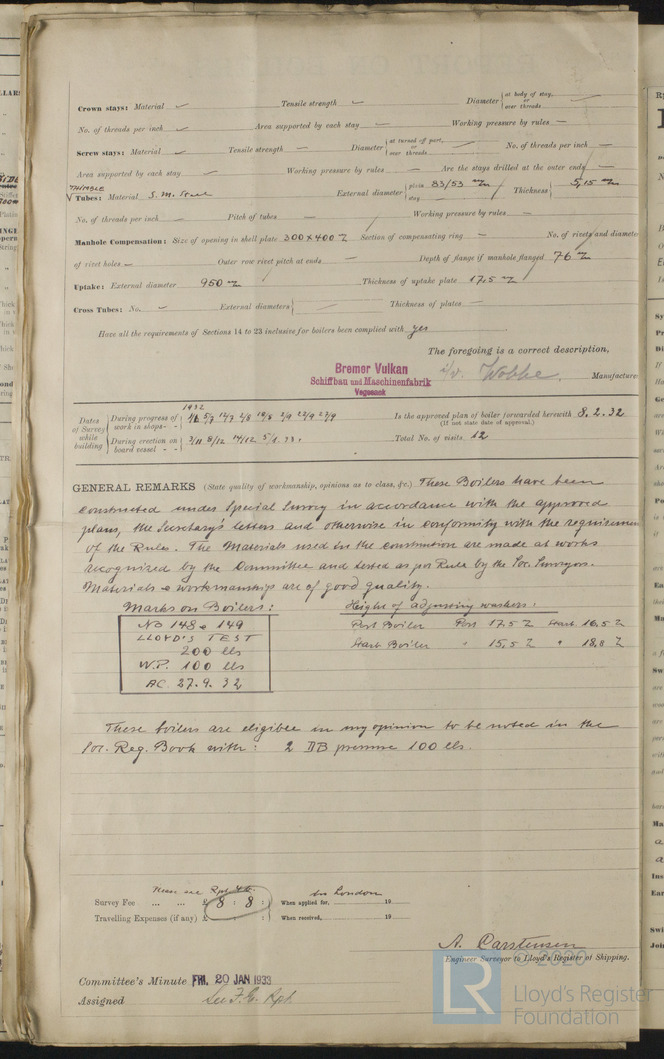 Crown stays: Material ✓ Tensile strength ✓ Diameter { at body of stay, or over threads
No. of threads per inch ✓ Area supported by each stay — Working pressure by rules —
Screw stays: Material ✓ Tensile strength — Diameter { at turned off part, or over threads No. of threads per inch —
Area supported by each stay ✓ Working pressure by rules — Are the stays drilled at the outer ends —
THIMBLE
Tubes: Material S. M. Steel External diameter { plain 83/53 m/m stay Thickness { 5,15 m/m
No. of threads per inch — Pitch of tubes — Working pressure by rules —
Manhole Compensation: Size of opening in shell plate 300x400 m/m Section of compensating ring — No. of rivets and diameter
of rivet holes — Outer row rivet pitch at ends — Depth of flange if manhole flanged 76 m/m
Uptake: External diameter 950 m/m Thickness of uptake plate 17.5 m/m
Cross Tubes: No. ✓ External diameters { Thickness of plates —
Have all the requirements of Sections 14 to 23 inclusive for boilers been complied with yes
The foregoing is a correct description,
Bremer Vulkan
Schiffbau und Maschinenfabrik
Vegesack
i/v. Wobbe. Manufacturer
1932
Dates of Survey while building
During progress of work in shops - - 5/7 12/7 2/8 10/8 2/9 22/9 27/9
Is the approved plan of boiler forwarded herewith 8.2.32
(If not state date of approval.)
During erection on board vessel - - 3/11 8/12 14/12 5/1 33.
Total No. of visits 12
GENERAL REMARKS (State quality of workmanship, opinions as to class, &c.) These Boilers have been
constructed under Special Survey in accordance with the approved
plans, the Secretary's letters and otherwise in conformity with the requirements
of the Rules. The Materials used in the construction are made at works
recognized by the Committee and tested as per Rule by the Soc. Surveyors.
Materials & workmanship are of good quality.
Marks on Boilers: Height of adjusting washers:
No 148 & 149
LLOYD'S TEST
200 lbs
W.P. 100 lbs
AC. 27.9.32
Port Boiler Port 17.5 m/m Starb. 16,5 m/m
Starb Boiler " 15,5 m/m " 18,0 m/m
These boilers are eligible in my opinion to be noted in the
Soc. Reg. Book with: 2 DB pressure 100 lbs.
Please see Rpt 4b.
Survey Fee ... ... £ 8 : 8 : When applied for, in London 19
Travelling Expenses (if any) £ : : When received, 19
A. Carstensen
Engineer Surveyor to Lloyd's Register of Shipping.
Committee's Minute FRI. 20 JAN 1933
Assigned See F.E. Rpt.
© 2020
LR
Lloyd's Register
Foundation